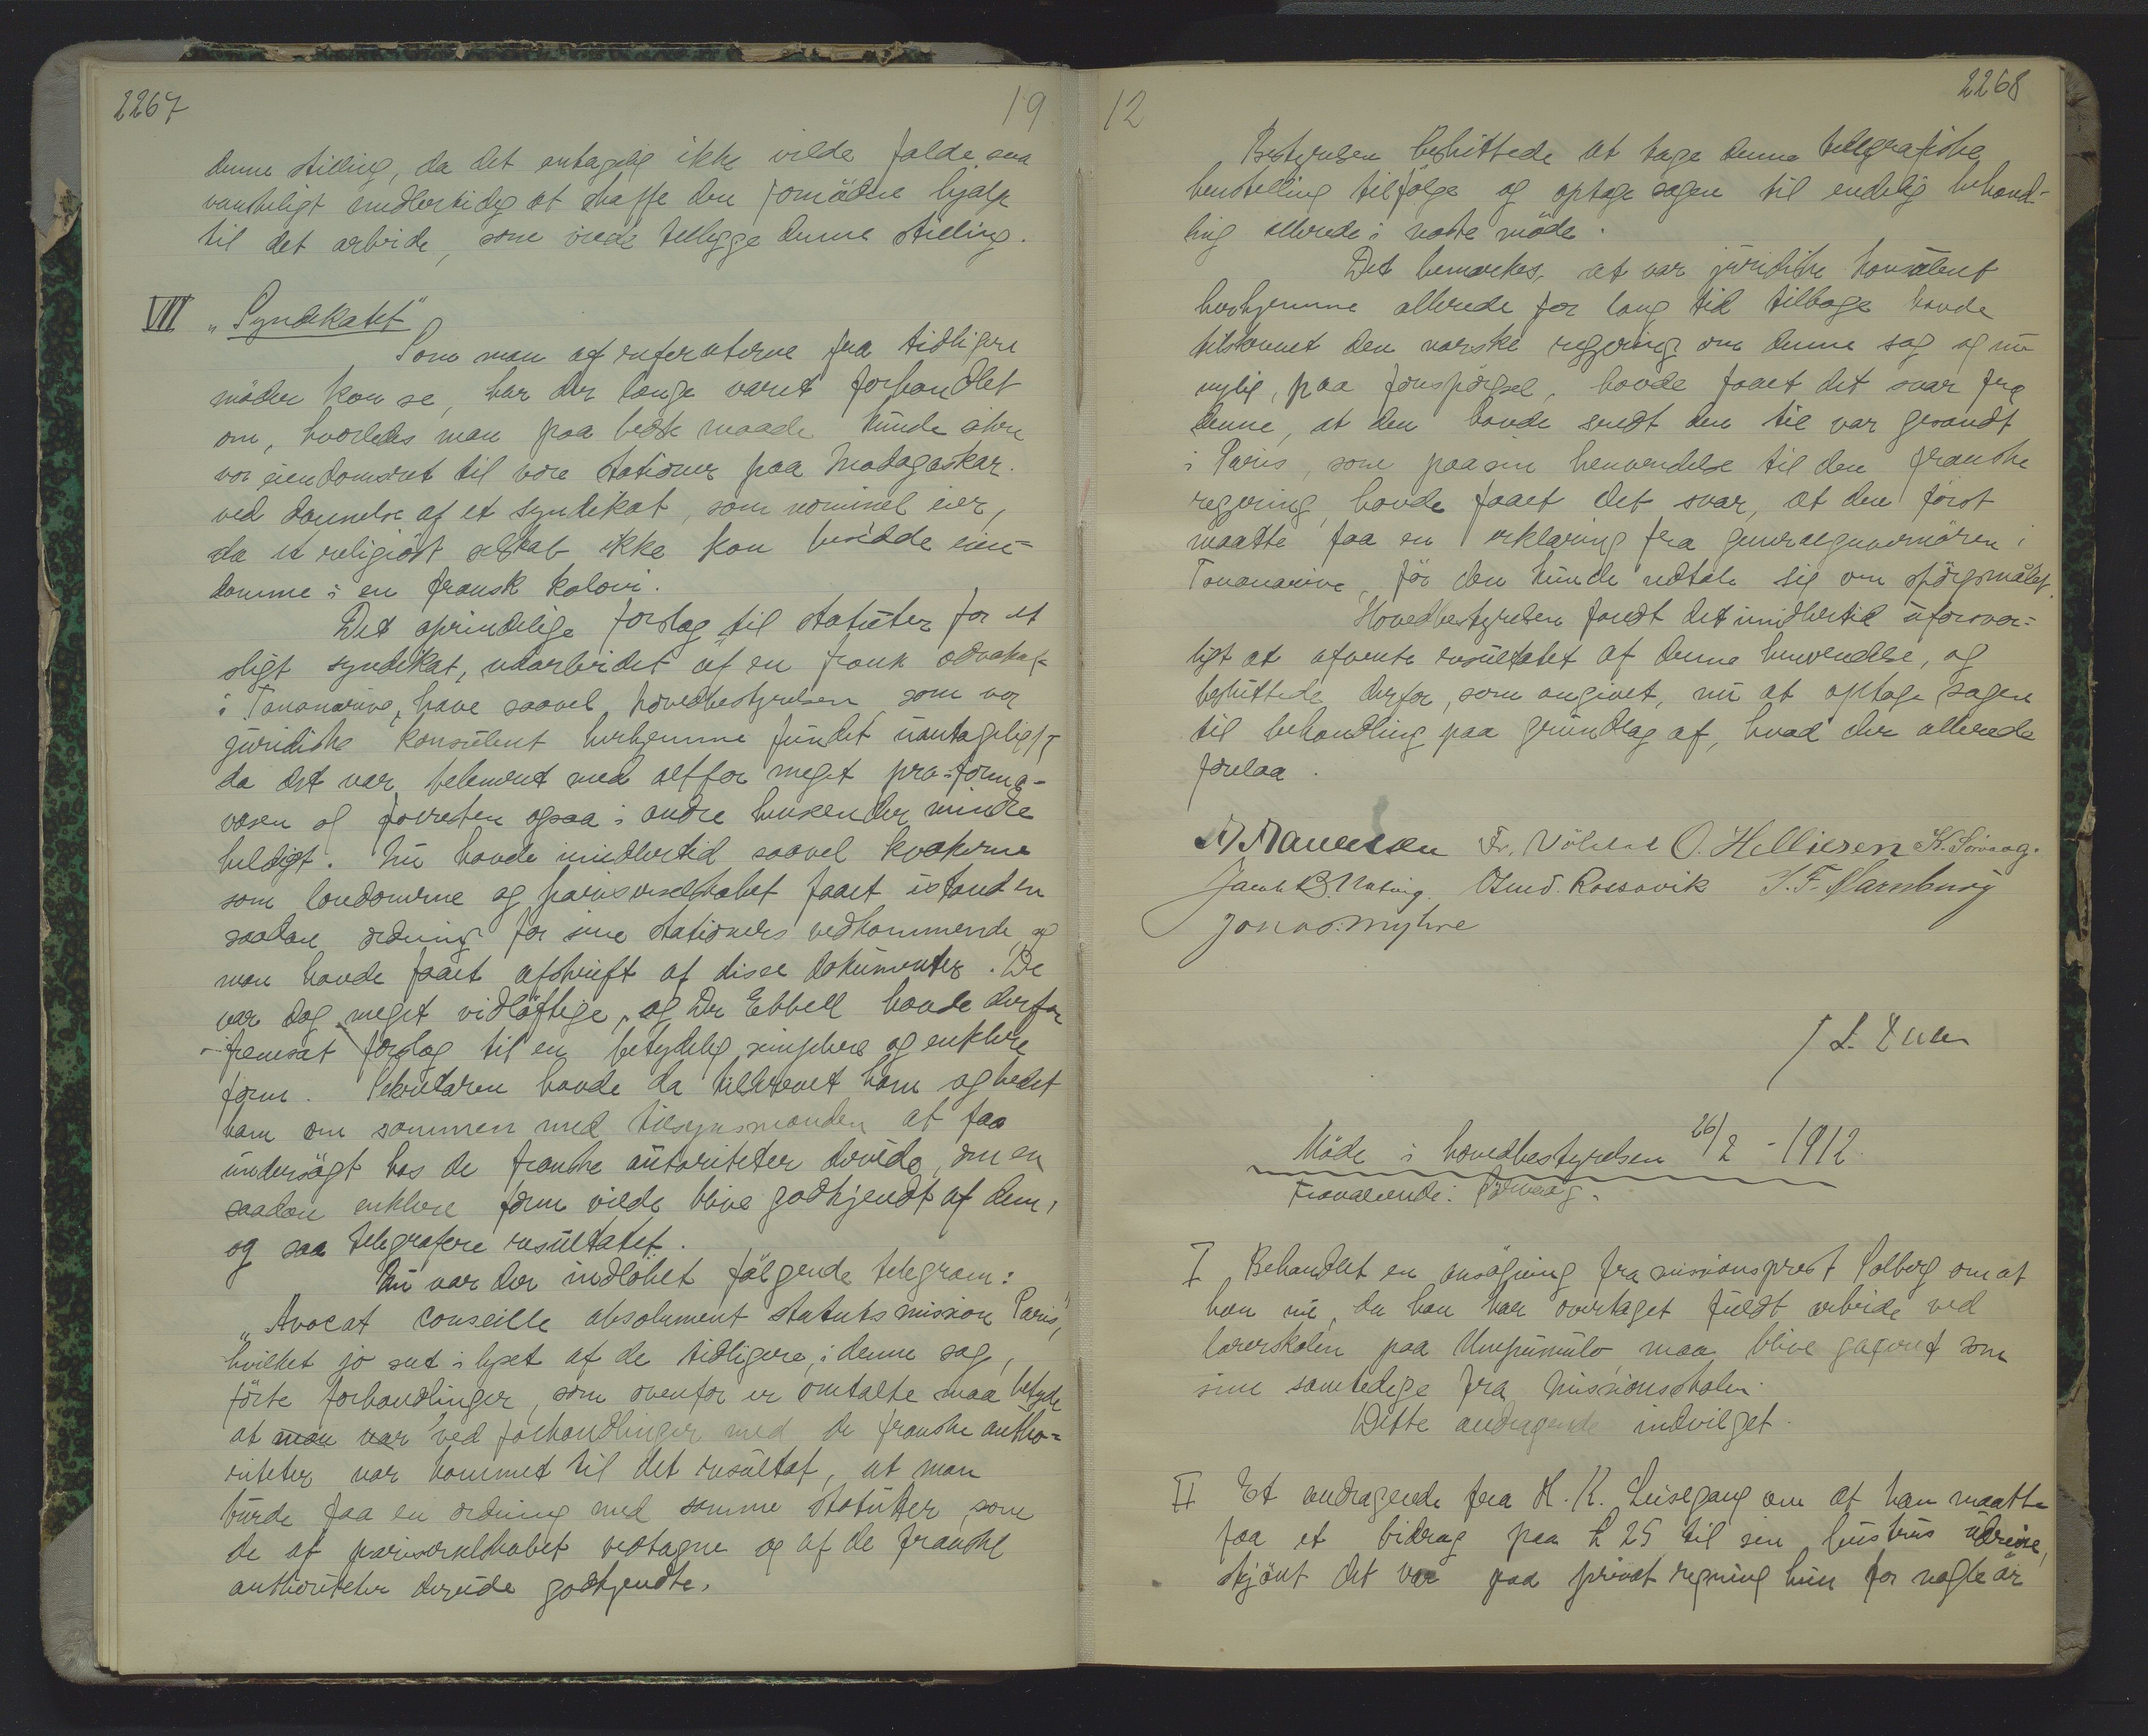 2267
19
denne stilling, da det antagelig ikke vilde falde saa
vanskeligt midlertidig at skaffe den fornödne hjælp
til det arbeide, som denne stilling.
VII "Syndikatet"
Som man af referaterne fra tidligere
möder kan se, har der længe været forhandlet
om, hvorledes man paa bedste maade kunde sikre
vor eiendomsret til vore stationer paa Madagaskar.
ved dannelse af et syndikat, som nominel eier,
da et religiöst selskab ikke kan besidde eien-
domme i en fransk koloni.
Det oprindelige forslag til statuter for et
sligt syndikat, udarbeidet af en fransk advokat
i Tananarive, have saavel hovedbestyrelsen som vor
juridiske konsulent herhjemme fundet uantageligt,
da det var belemret med altfor meget pro-forma-
væsen og forresten ogsaa i andre henseender mindre
heldigt. Nu havde imidlertid saavel kvækerne
som londonerne og pariserselskabet faaet istand en
saadan ordning for sine stationers vedkommende, og
man havde faaet afskrift af disse dokumenter. De
var dog meget vidlöftige, og Dr Ebbell havde derfor
fremsat forslag til en betydelig simplere og enklere
form. Sekretæren havde da tilskrevet ham og bedt
ham om sammen med tilsynsmanden at faa
undersögt hos de franske autoriteter derude, om en
saadan enklere form vilde blive godkjendt af dem,
og saa telegrafere resultatet.
Nu var der indlöbet fölgende telegram:
"Avocat conseille absolument statuts mission Paris",
hvilket jo set i lyset af de tidligere, i denne sag,
förte forhandlinger, som ovenfor er omtalte maa betyde
at man var ved forhandlinger med de franske autho-
riteter var kommet til det resultat, at man
burde faa en ordning med samme statuter, som
de af pariserselskabet vedtagne og af de franske
authoriteter derude godkjendte.
12
2268
Bestyrelsen besluttede at tage denne telegrafiske
henstilling tilfölge og optage sagen til endelig behand-
ling allerede i næste möde.
Det bemærkes, at vor juridiske konsulent
herhjemme allerede for lang tid tilbage havde
tilskrevet den norske regjering om denne sag og nu
nylig, paa forespörgsel, havde faaet det svar fra
denne, at den havde sendt den til vor gesandt
i Paris, som paa sin henvendelse til den franske
regjering, havde faaet det svar, at den först
maatte faa en erklæring fra generalguvernören i
Tananarive, för den kunde udtale sig om spörgsmålet.
Hovedbestyrelsen fandt det imidlertid uforsvar-
ligt at afvente resultatet af denne henvendelse, og
besluttede derfor, som angivet, nu at optage sagen
til behandling paa grundlag af, hvad der allerede
forelaa.
Fr. O. Helliesen K. Sörvaag.
Jacob Osmd. Rossavik S. F.
Jonas Myhre
Möde i hovedbestyrelsen 26/2 - 1912.
Fraværende: Sörvaag.
I Behandlet en ansögning fra missionsprest Solberg om at
han nu, da han har overtaget fuldt arbeide ved
lærerskolen paa Umpumulo, maa blive gageret som
sine samtidige fra missionsskolen.
Dette andragende indvilget.
II Et andragende fra H. K. Leisegang om at han maatte
faa et bidrag paa £ 25 til sin hustrus udreise,
skjönt det var paa privat regning hun for nogle år